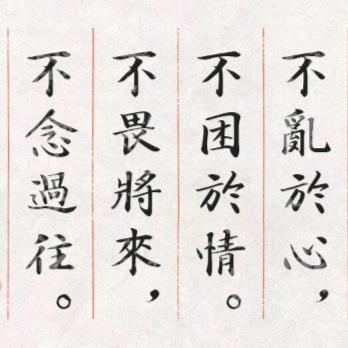 不亂於心，
不困於情。
不畏將來，
不念過往。